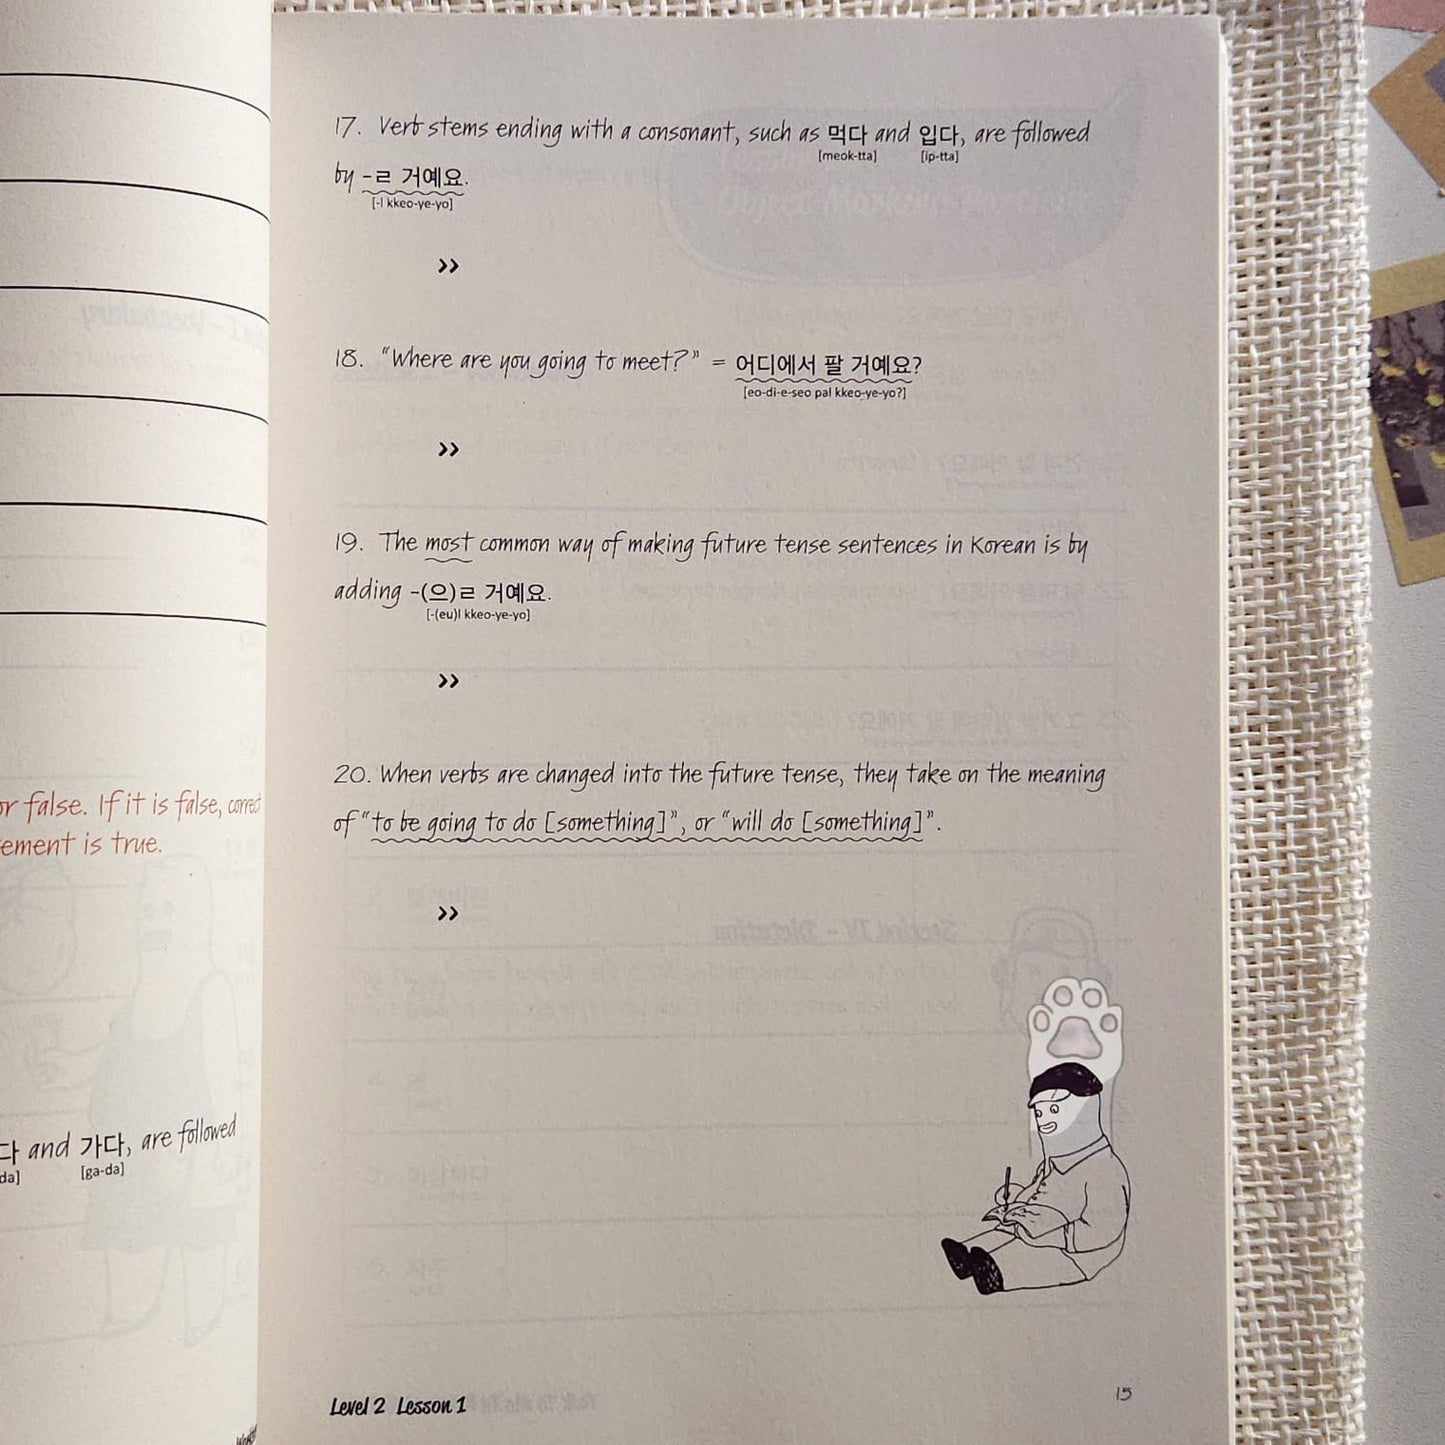 or false. If it is false, correct
ement is true.
다 and 가다, are followed
da] [ga-da]
17. Verb stems ending with a consonant, such as 먹다 and 입다, are followed
[meok-tta] [ip-tta]
by -ㄹ 거예요.
[-l kkeo-ye-yo]
››
18. "Where are you going to meet?" = 어디에서 팔 거예요?
[eo-di-e-seo pal kkeo-ye-yo?]
››
19. The most common way of making future tense sentences in Korean is by
adding -(으)ㄹ 거예요.
[-(eu)l kkeo-ye-yo]
››
20. When verbs are changed into the future tense, they take on the meaning
of "to be going to do [something]", or "will do [something]".
››
Level 2 Lesson 1
15